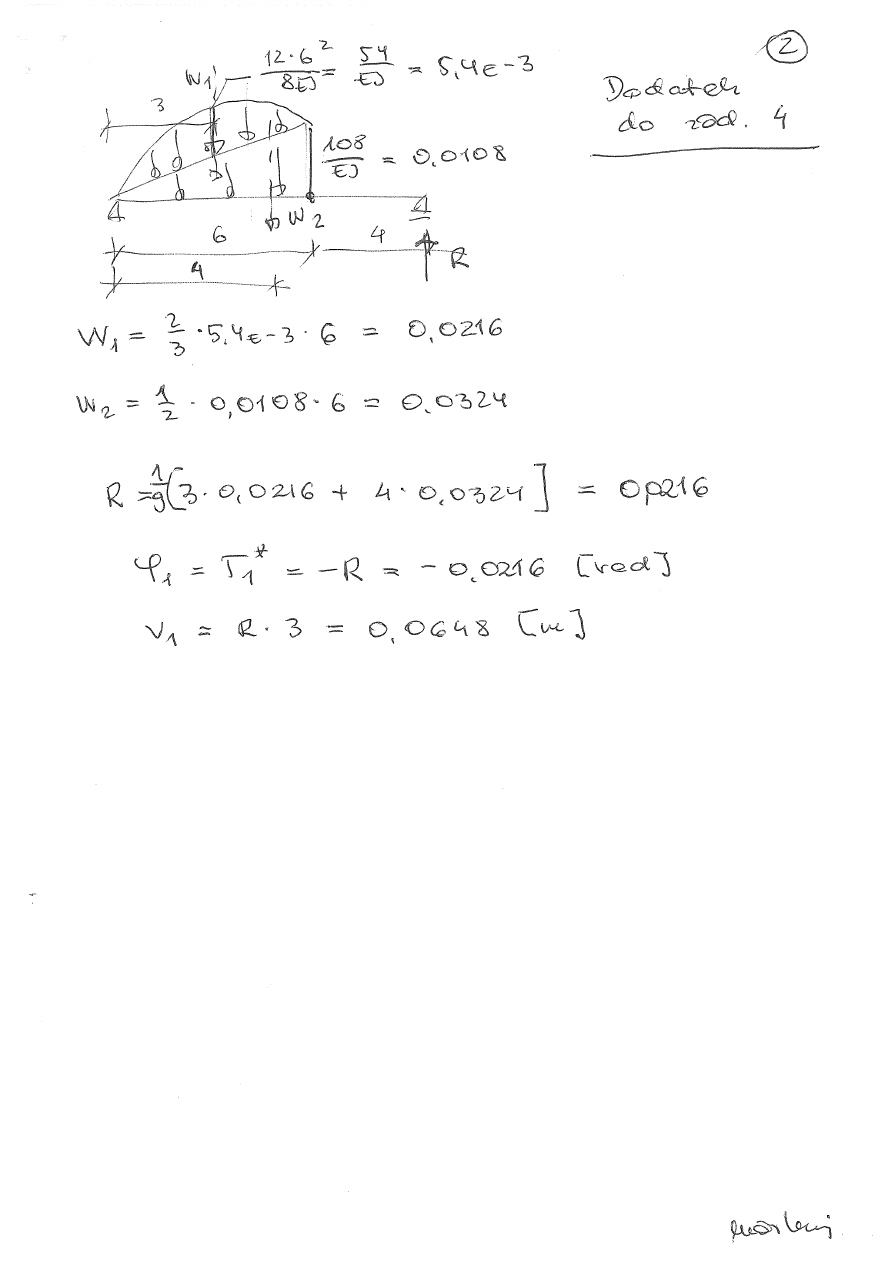 2
Dodatek
do zad. 4
W1 12·6²/8EJ = 54/EJ = 5,4E-3
3
108/EJ = 0,0108
W2
6
4
R
4
W₁ = 2/3 · 5,4E-3 · 6 = 0,0216
W₂ = 1/2 · 0,0108 · 6 = 0,0324
R = 1/9[3·0,0216 + 4·0,0324] = 0,0216
φ₁ = T₁* = -R = -0,0216 [rad]
V₁ = R·3 = 0,0648 [m]